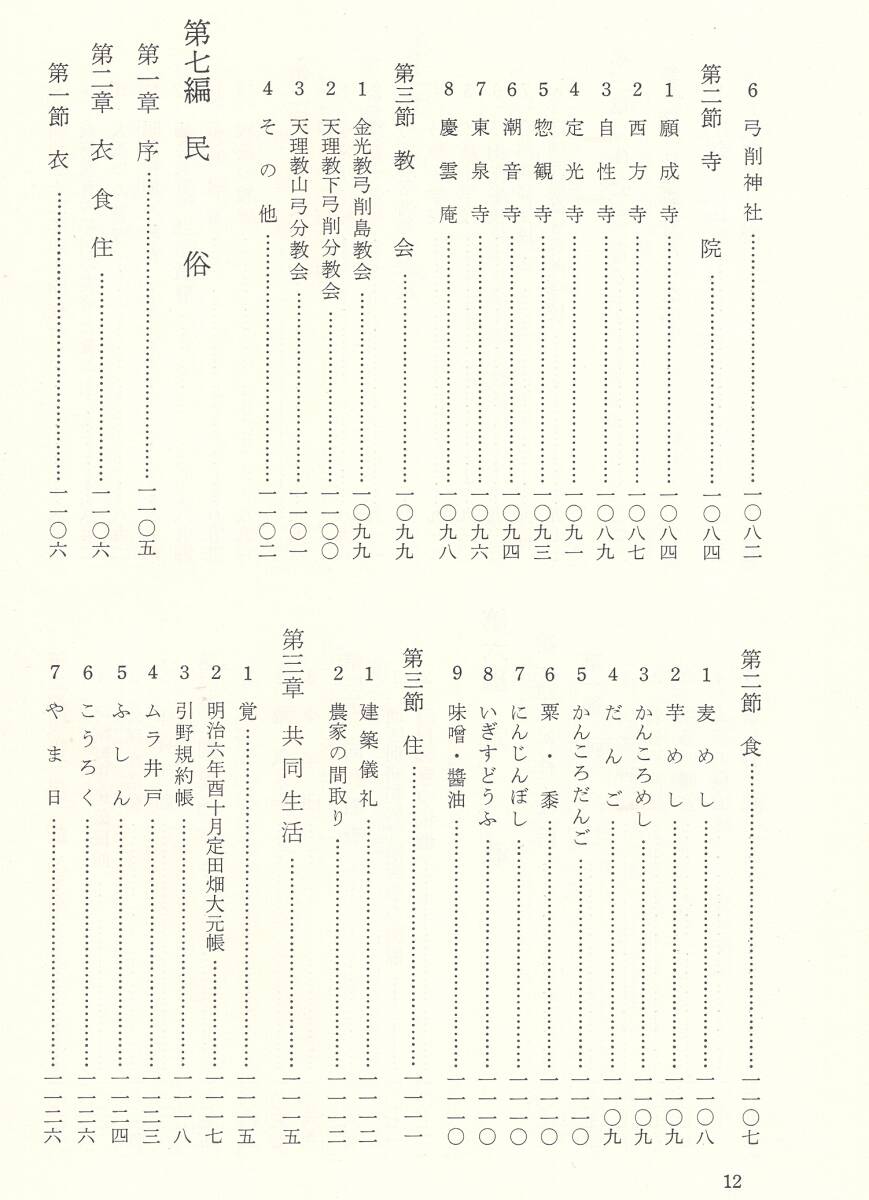 6 弓削神社 一〇八二
第二節 寺院 一〇八四
1 願成寺 一〇八四
2 西方寺 一〇八七
3 自性寺 一〇八九
4 定光寺 一〇九一
5 惣観寺 一〇九三
6 潮音寺 一〇九四
7 東泉寺 一〇九六
8 慶雲庵 一〇九八
第三節 教会 一〇九九
1 金光教弓削島教会 一〇九九
2 天理教下弓削分教会 一一〇〇
3 天理教山弓分教会 一一〇一
4 その他 一一〇二
第七編 民俗
第一章 序 一一〇五
第二章 衣食住 一一〇六
第一節 衣 一一〇六
第二節 食 一一〇七
1 麦めし 一一〇八
2 芋めし 一一〇九
3 かんころめし 一一〇九
4 だんご 一一〇九
5 かんころだんご 一一一〇
6 粟・黍 一一一〇
7 にんじんぼし 一一一〇
8 いぎすどうふ 一一一〇
9 味噌・醬油 一一一〇
第三節 住 一一一一
1 建築儀礼 一一一二
2 農家の間取り 一一一二
第三章 共同生活 一一一五
1 覚 一一一五
2 明治六年酉十月定田畑大元帳 一一一七
3 引野規約帳 一一一八
4 ムラ井戸 一一二三
5 ふしん 一一二四
6 こうろく 一一二六
7 やま日 一一二六
12